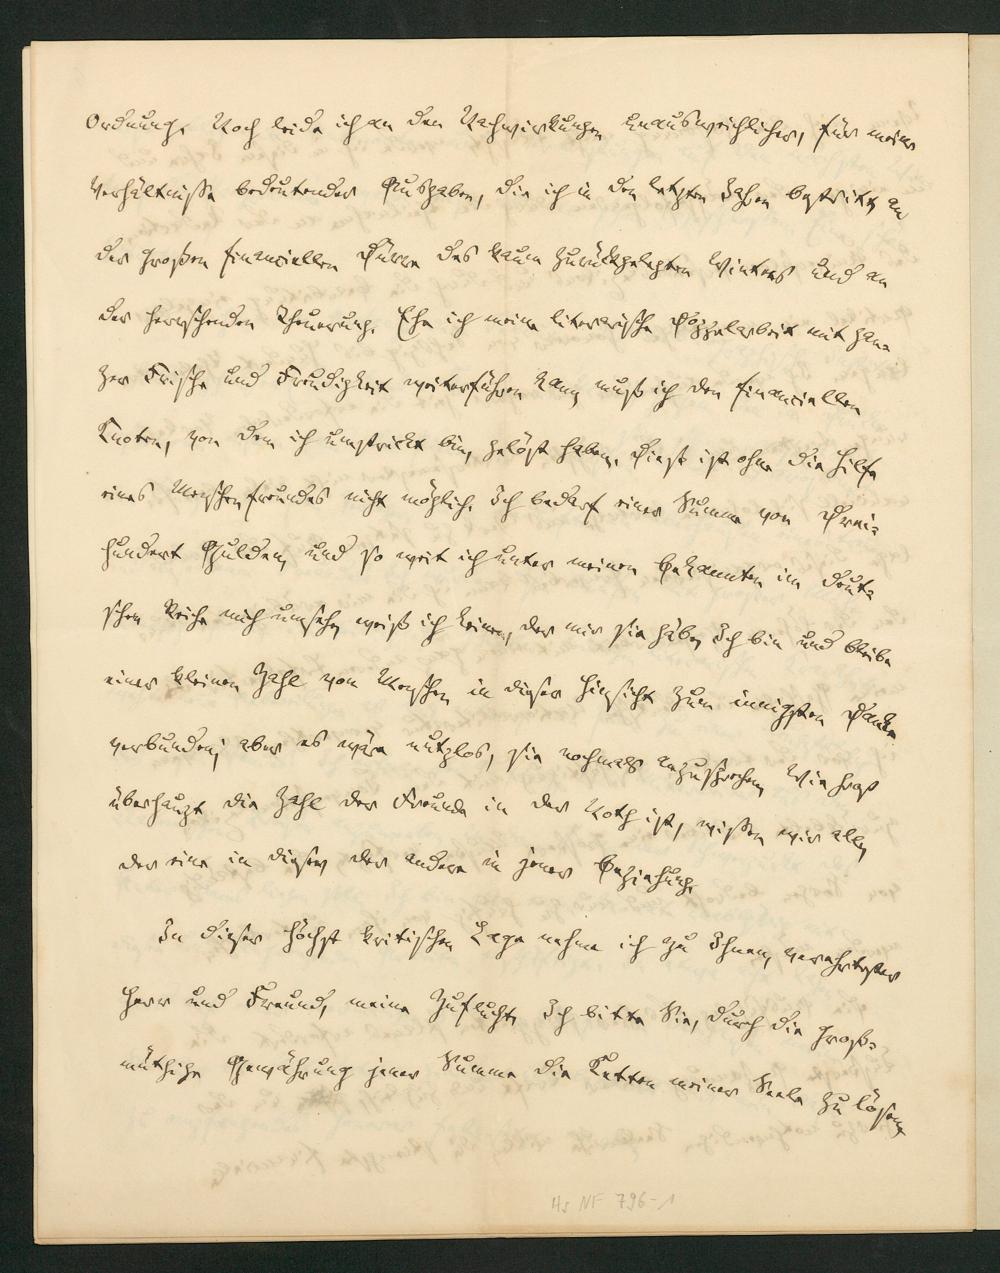 Ordnung. Noch leide ich an den Nachwirkungen unausweichlicher, für meine
Verhältnisse bedeutender Ausgaben, die ich in den letzten Jahren bestritt, an
der großen financiellen Dürre des kaum zurückgelegten Winters und an
der herrschenden Theuerung. Ehe ich meine literarische Doppelarbeit mit gan-
zer Frische und Freudigkeit weiterführen kann, muß ich den financiellen
Knoten, von dem ich umstrickt bin, gelöst haben. Dieß ist ohne die Hilfe
eines Menschenfreundes nicht möglich. Ich bedarf einer Summe von Drei-
hundert Gulden, und so weit ich unter meinen Bekannten im deut-
schen Reiche mich umsehe, weiß ich keinen, der mir sie gäbe. Ich bin und bleibe
einer kleinen Zahl von Menschen in dieser Hinsicht zum innigsten Danke
verbunden; aber es wäre nutzlos, sie nochmals anzusprechen. Wie groß
überhaupt die Zahl der Freunde in der Noth ist, wissen wir alle,
der eine in dieser, der andere in jener Beziehung.
In dieser höchst kritischen Lage nehme ich zu Ihnen, verehrtester
Herr und Freund, meine Zuflucht. Ich bitte Sie, durch die groß-
müthige Gewährung jener Summe die Ketten meiner Seele zu lösen,
Hs NF 796-1